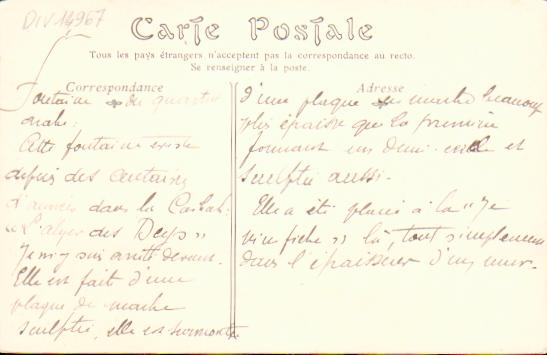 DIV 14967
Carte Postale
Tous les pays étrangers n'acceptent pas la correspondance au recto.
Se renseigner à la poste.
Correspondance
Fontaine du quartier
arabe:
Cette fontaine existe
depuis des centaines
d'années dans la Casbah:
"L'alger des Deys"
Je m'y suis arrêté devant.
Elle est fait d'une
plaque de marbre
sculptée, elle est surmontée
Adresse
d'une plaque de marbre beaucoup
plus épaisse que la première
formant un demi cercle et
sculptée aussi.
Elle a été placée à la "Je
m'en fiche" là, tout simplement
dans l'épaisseur d'un mur.